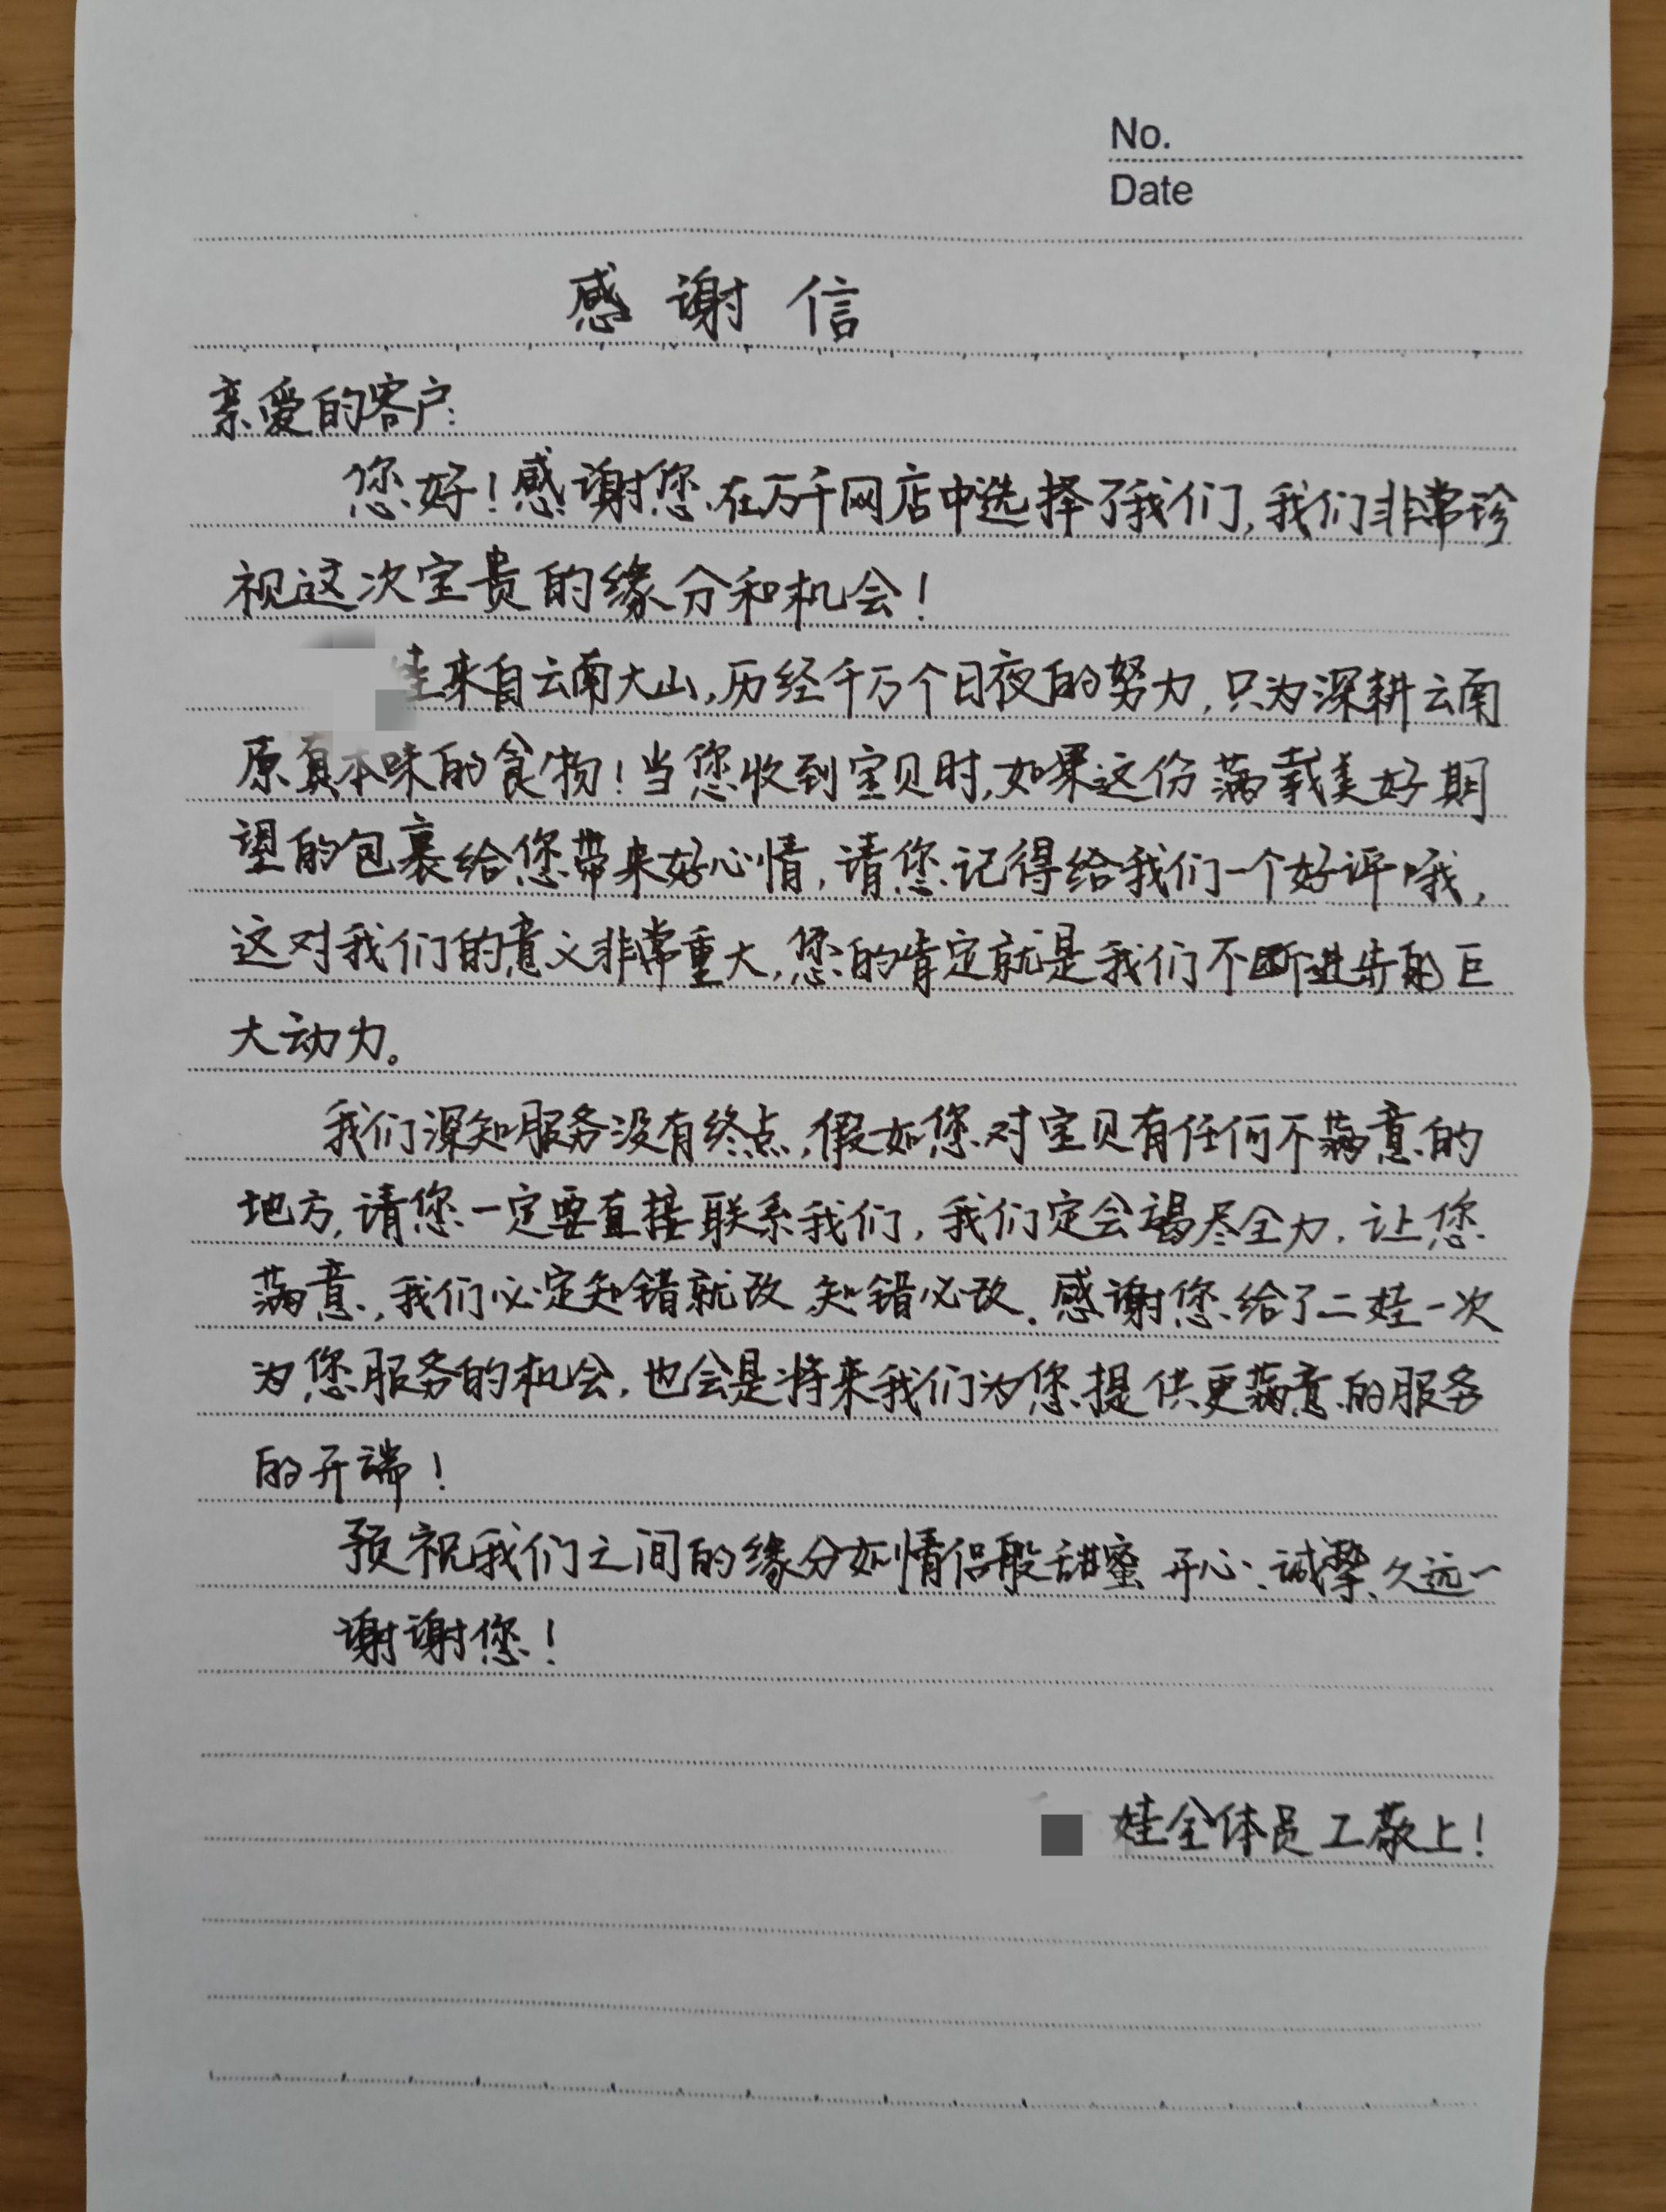 No.
Date
感谢信
亲爱的客户:
您好!感谢您在万千网店中选择了我们,我们非常珍
视这次宝贵的缘分和机会!
娃来自云南大山,历经千万个日夜的努力,只为深耕云南
原真本味的食物!当您收到宝贝时,如果这份满载美好期
望的包裹给您带来好心情,请您记得给我们一个好评哦,
这对我们的意义非常重大,您的肯定就是我们不断进步的巨
大动力。
我们深知服务没有终点,假如您对宝贝有任何不满意的
地方,请您一定要直接联系我们,我们定会竭尽全力,让您
满意,我们必定知错就改、知错必改。感谢您给了二娃一次
为您服务的机会,也会是将来我们为您提供更满意的服务
的开端!
预祝我们之间的缘分如情侣般甜蜜 开心、诚挚、久远一
谢谢您!
娃全体员工敬上!